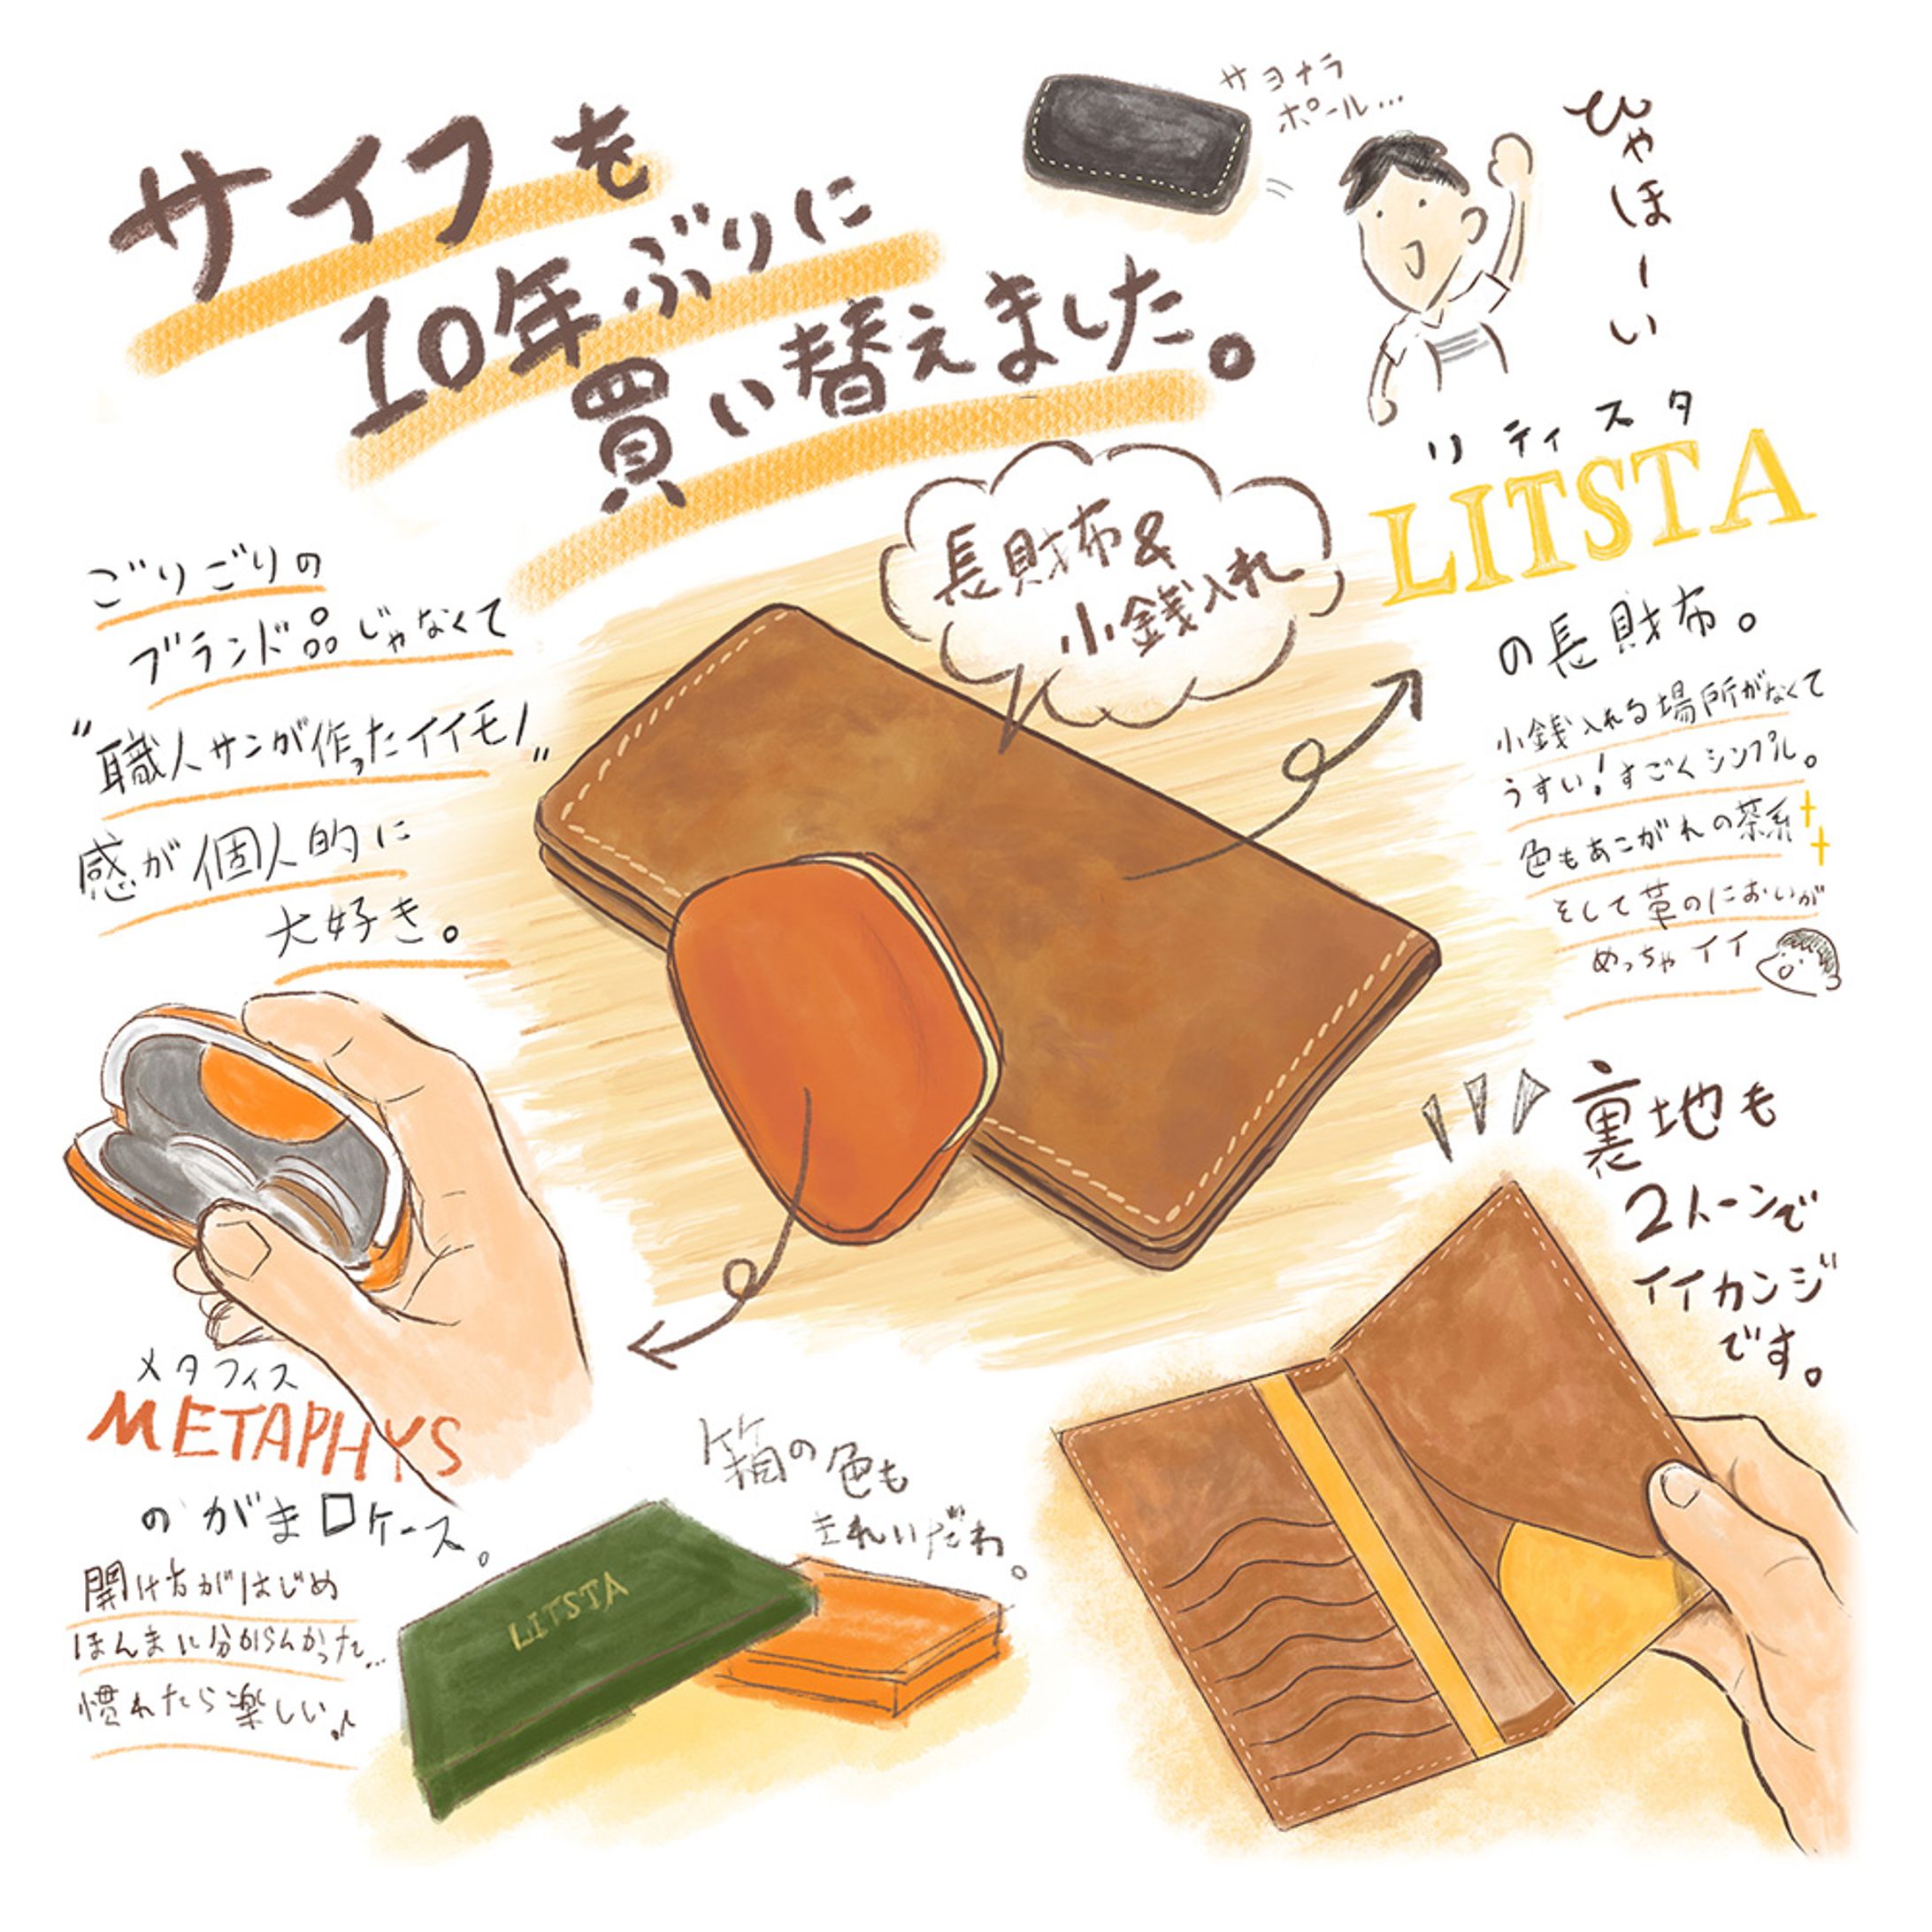 サイフを
10年ぶりに
買い替えました。
サヨナラ
ポール…
ひゃほーい
長財布&
小銭入れ
リティスタ
LITSTA
の長財布。
小銭入れる場所がなくて
うすい!すごくシンプル。
色もあこがれの茶系
そして革のにおいが
めっちゃイイ
ごりごりの
ブランド品じゃなくて
"職人サンが作ったイイモノ"
感が個人的に
大好き。
裏地も
2トーンで
イイカンジ
です。
メタフィス
METAPHYS
のがま口ケース。
開け方がはじめ
ほんまに分からんかった…
慣れたら楽しい♪
箱の色も
きれいだわ。
LITSTA